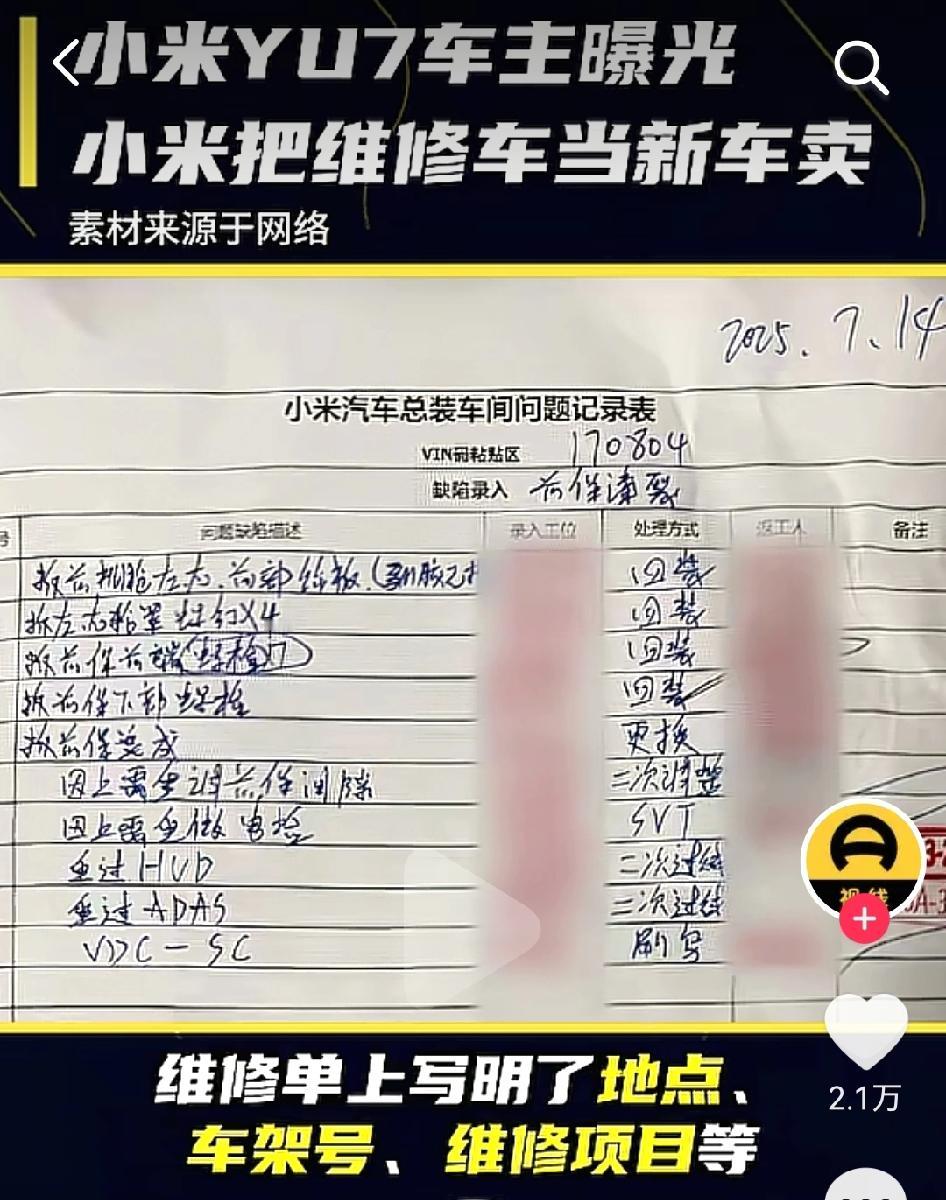 小米YU7车主曝光
小米把维修车当新车卖
素材来源于网络
2025.7.14
小米汽车总装车间问题记录表
VIN码粘贴区 170804
缺陷录入 前保漆裂
号 问题缺陷描述 录入工位 处理方式 返工人 备注
回装
拆左右 X4 回装
拆前保前端螺栓 回装
拆前保下部螺栓 回装
拆前保总成 更换
因上需重调前保间隙 二次调整
因上需重做电检 SVT
重过HUD 二次过线
重过ADAS 二次过线
VDC-SC 刷写
视线
2.1万
维修单上写明了地点、
车架号、维修项目等